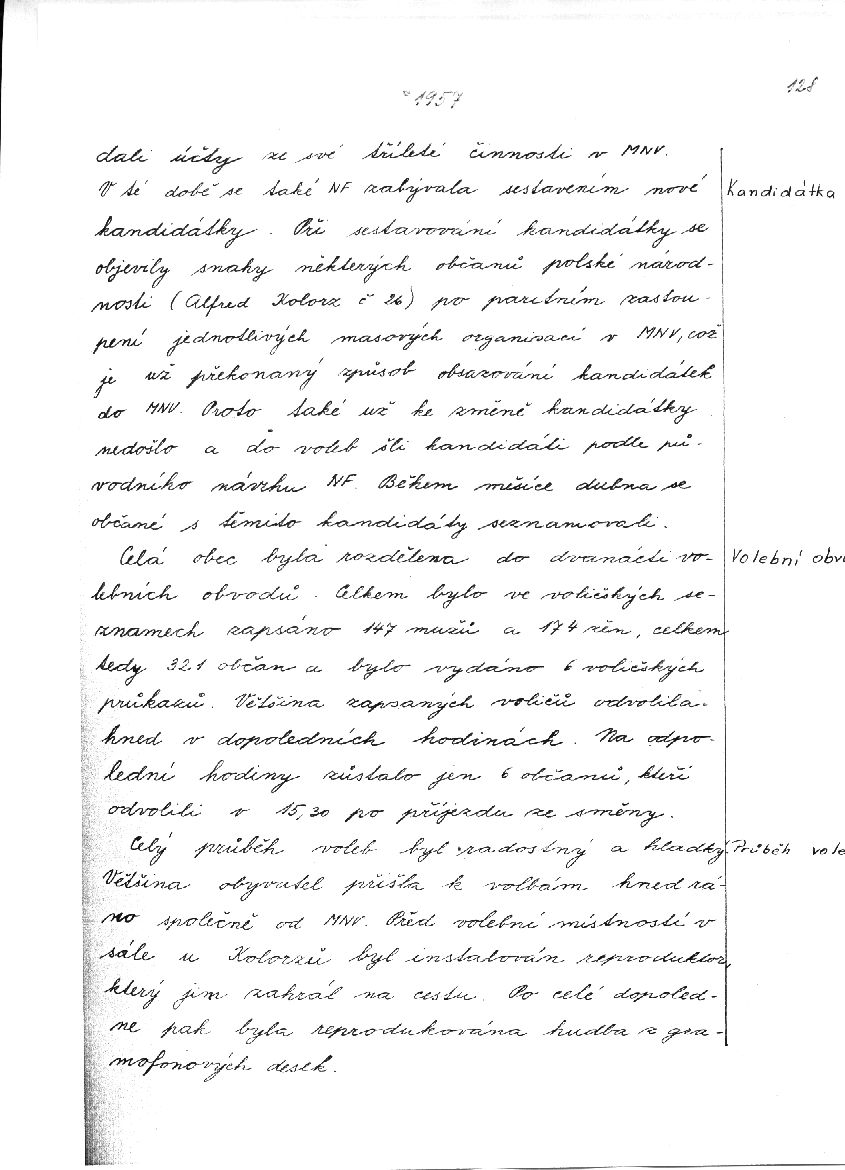 128
1957
dali účty ze své tříleté činnosti v MNV.
V té době se také NF zabývala sestavením nové
Kandidátka
kandidátky. Při sestavování kandidátky se
objevily snahy některých občanů polské národ-
nosti (Alfred Kolorz č 26) po paritním zastou-
pení jednotlivých masových organisací v MNV, což
je už překonaný způsob obsazování kandidátek
do MNV. Proto také už ke změně kandidátky
nedošlo a do voleb šli kandidáti podle pů-
vodního návrhu NF. Během měsíce dubna se
občané s těmito kandidáty seznamovali.
Celá obec byla rozdělena do dvanácti vo-
Volební obv
lebních obvodů. Celkem bylo ve voličských se-
znamech zapsáno 147 mužů a 174 žen, celkem
tedy 321 občan a bylo vydáno 6 voličských
průkazů. Většina zapsaných voličů odvolila
hned v dopoledních hodinách. Na odpo-
lední hodiny zůstalo jen 6 občanů, kteří
odvolili v 15,30 po příjezdu ze směny.
Celý průběh voleb byl radostný a hladký.
Průběh vole
Většina obyvatel přišla k volbám hned rá-
no společně od MNV. Před volební místností v
sále u Kolorzů byl instalován reproduktor,
který jim zahrál na cestu. Po celé dopoled-
ne pak byla reprodukována hudba z gra-
mofonových desek.